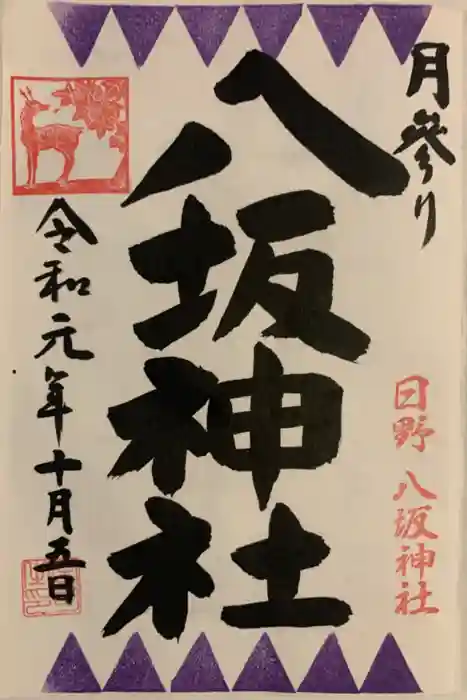 月參り
八坂神社
日野 八坂神社
令和元年十月五日